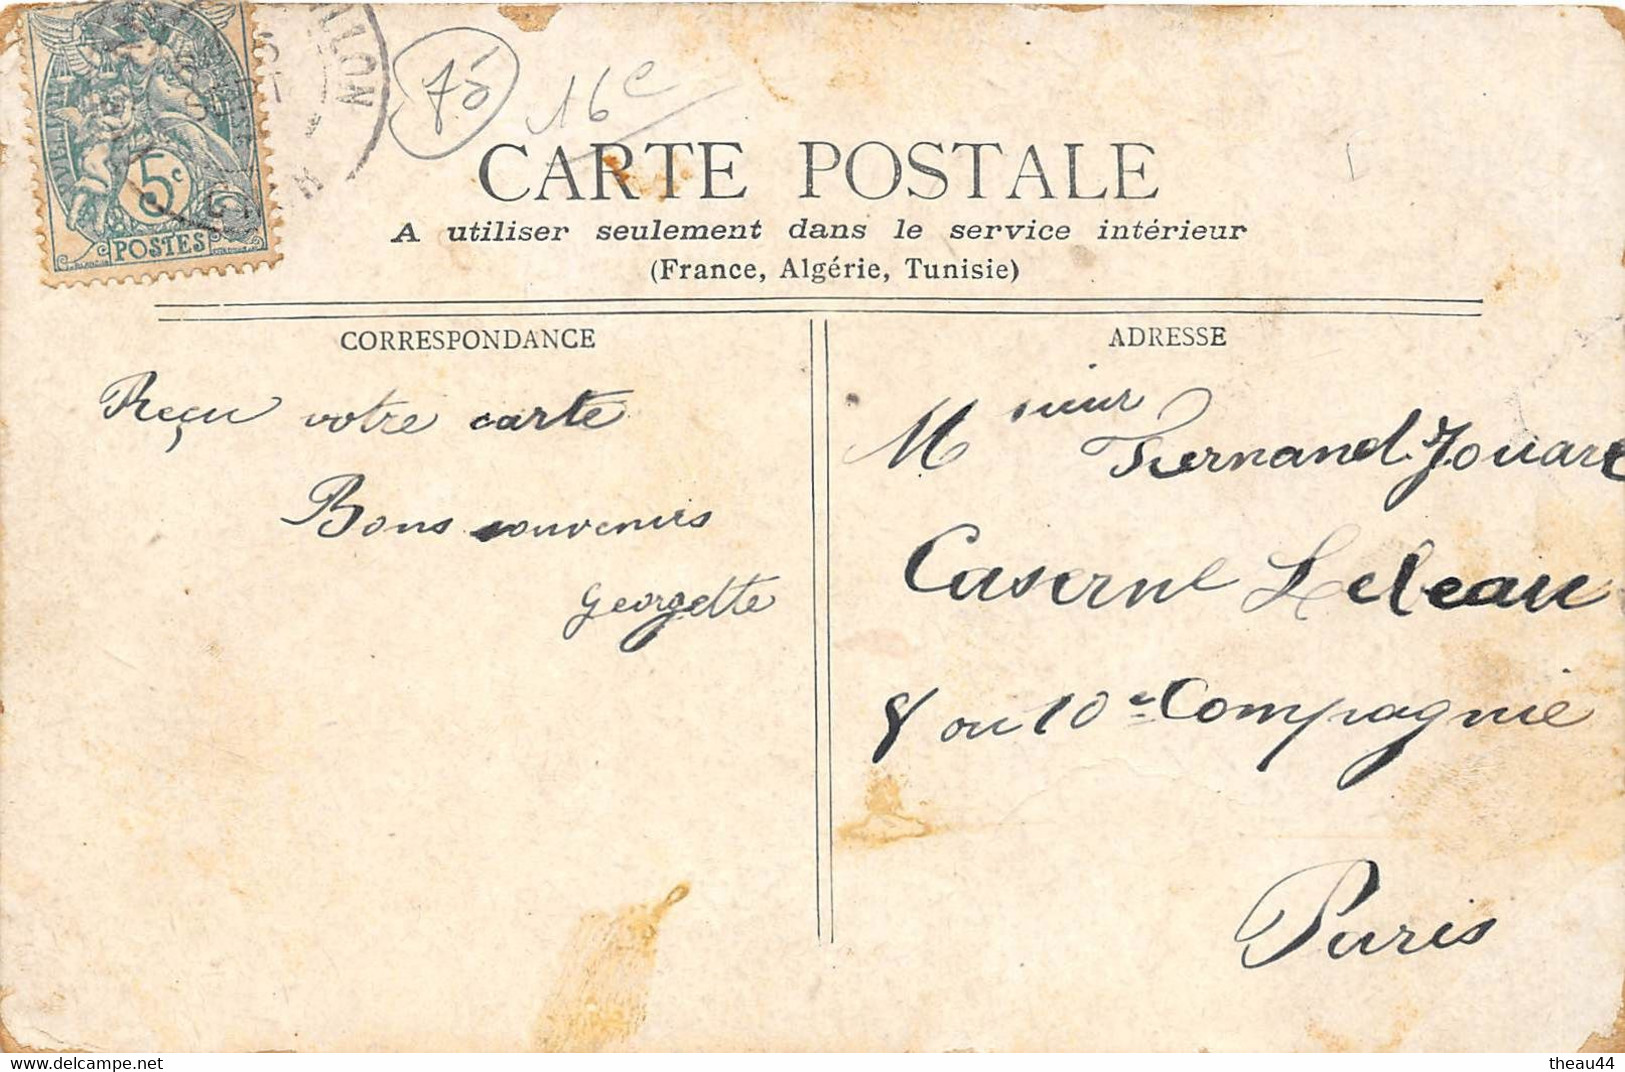 75
16e
5c
POSTES
CARTE POSTALE
A utiliser seulement dans le service intérieur
(France, Algérie, Tunisie)
CORRESPONDANCE
Reçu votre carte
Bons souvenirs
Georgette
ADRESSE
Monsieur Fernand Jouare
Caserne
8 ou 10e Compagnie
Paris
www.delcampe.net
theau44